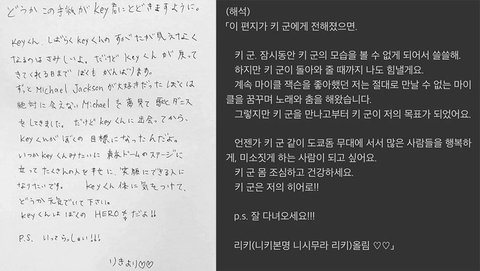 どうか この手紙が Key君にとどきますように。
Keyくん しばらく Keyくんの すがたが 見えなく
なるのは さみしいよ。だけど Keyくんが 戻って
きてくれる日まで ぼくも がんばります。
ずっと Michael Jacksonが大好きだった ぼくは
絶対に会えない Michael を 夢見て 歌と ダンス
をしてきました。だけど Keyくんに 出会ってから、
Keyくんが ぼくの 目標になったんだよ。
いつか Keyくんみたいに 東京ドームのステージに
立って たくさんの人を幸せに、笑顔にできる人に
なりたいです。 Keyくん 体に気をつけて、
どうか 元気でいて下さい。
Keyくんは ぼくの HERO だよ!!
P.S. いってらっしゃい!!!
りきより♡♡
(해석)
「이 편지가 키 군에게 전해졌으면.
키 군. 잠시동안 키 군의 모습을 볼 수 없게 되어서 쓸쓸해.
하지만 키 군이 돌아와 줄 때까지 나도 힘낼게요.
계속 마이클 잭슨을 좋아했던 저는 절대로 만날 수 없는 마이
클을 꿈꾸며 노래와 춤을 해왔습니다.
그렇지만 키 군을 만나고부터 키 군이 저의 목표가 되었어요.
언젠가 키 군 같이 도쿄돔 무대에 서서 많은 사람들을 행복하
게, 미소짓게 하는 사람이 되고 싶어요.
키 군 몸 조심하고 건강하세요.
키 군은 저의 히어로!!
p.s. 잘 다녀오세요!!!
리키(니키본명 니시무라 리키)올림 ♡♡」